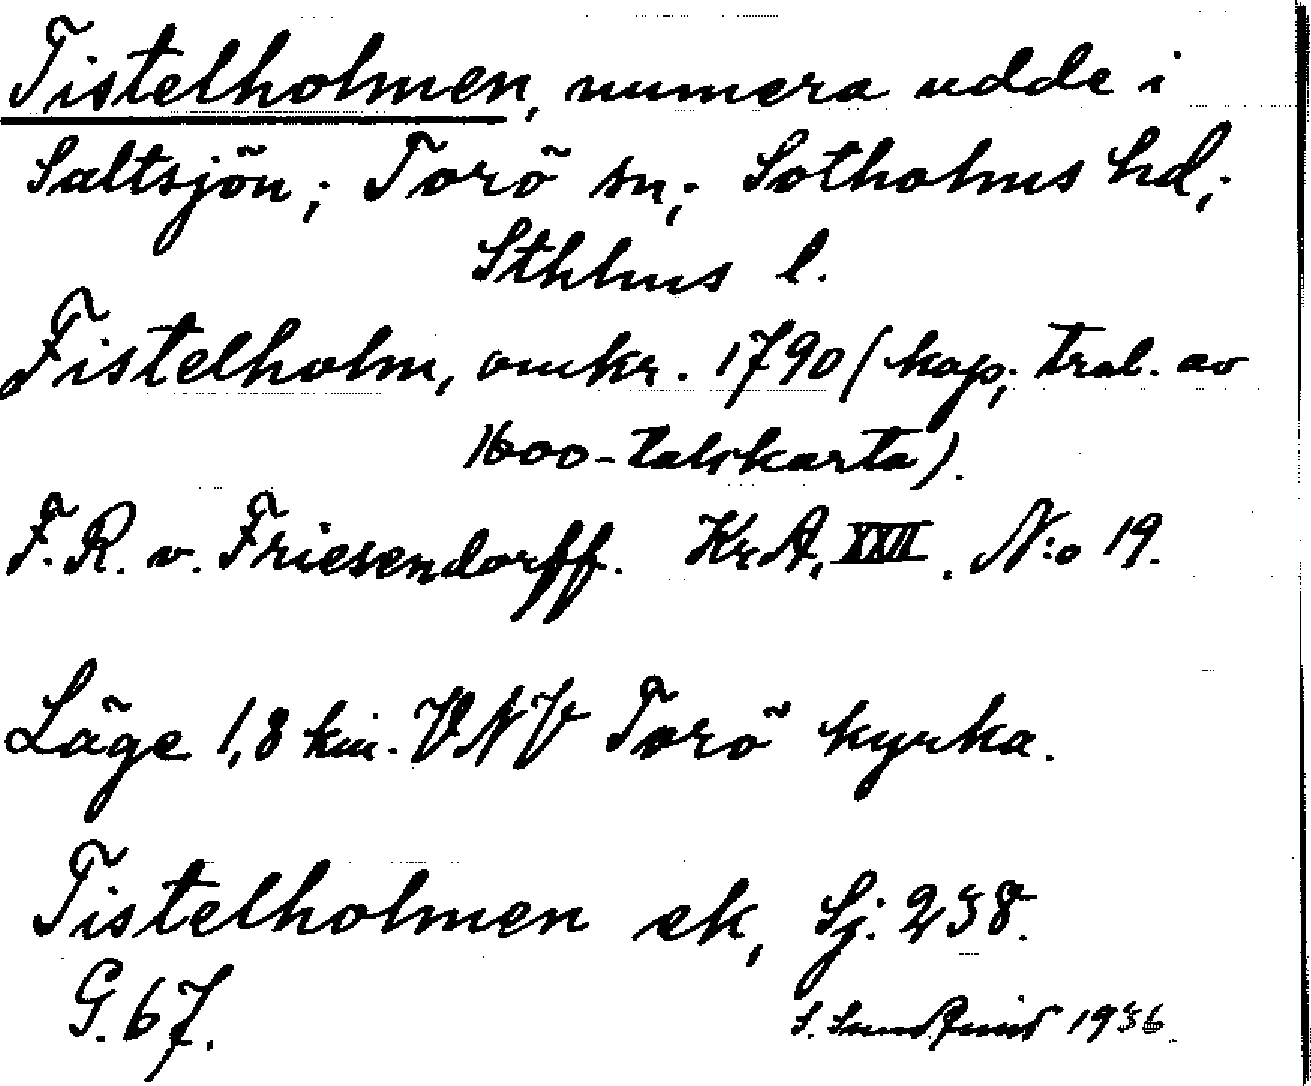 Tistelholmen, numera udde i
Saltsjön; Torö sn; Sotholms hd;
Sthlms l.
Fistelholm, omkr. 1790 (kop; trol. av
1600-talskarta).
F. R. v. Friesendorff. Kr.A, XXII. N:o 19.
Läge 1,8 km. VNV Torö kyrka.
Tistelholmen ek, Sj. 238.
G. 67.
S. 1936